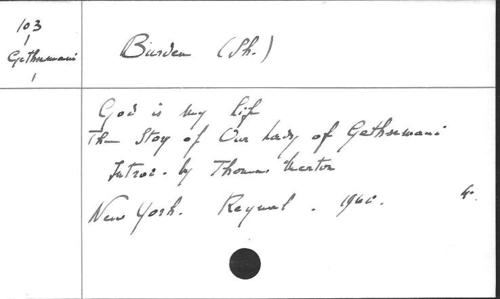 103
Gethsemani
Burden (Sh.)
God is my life
The Story of Our Lady of Gethsemani
Introd. by Thomas Merton
New York. Reynal. 1960. 4°.